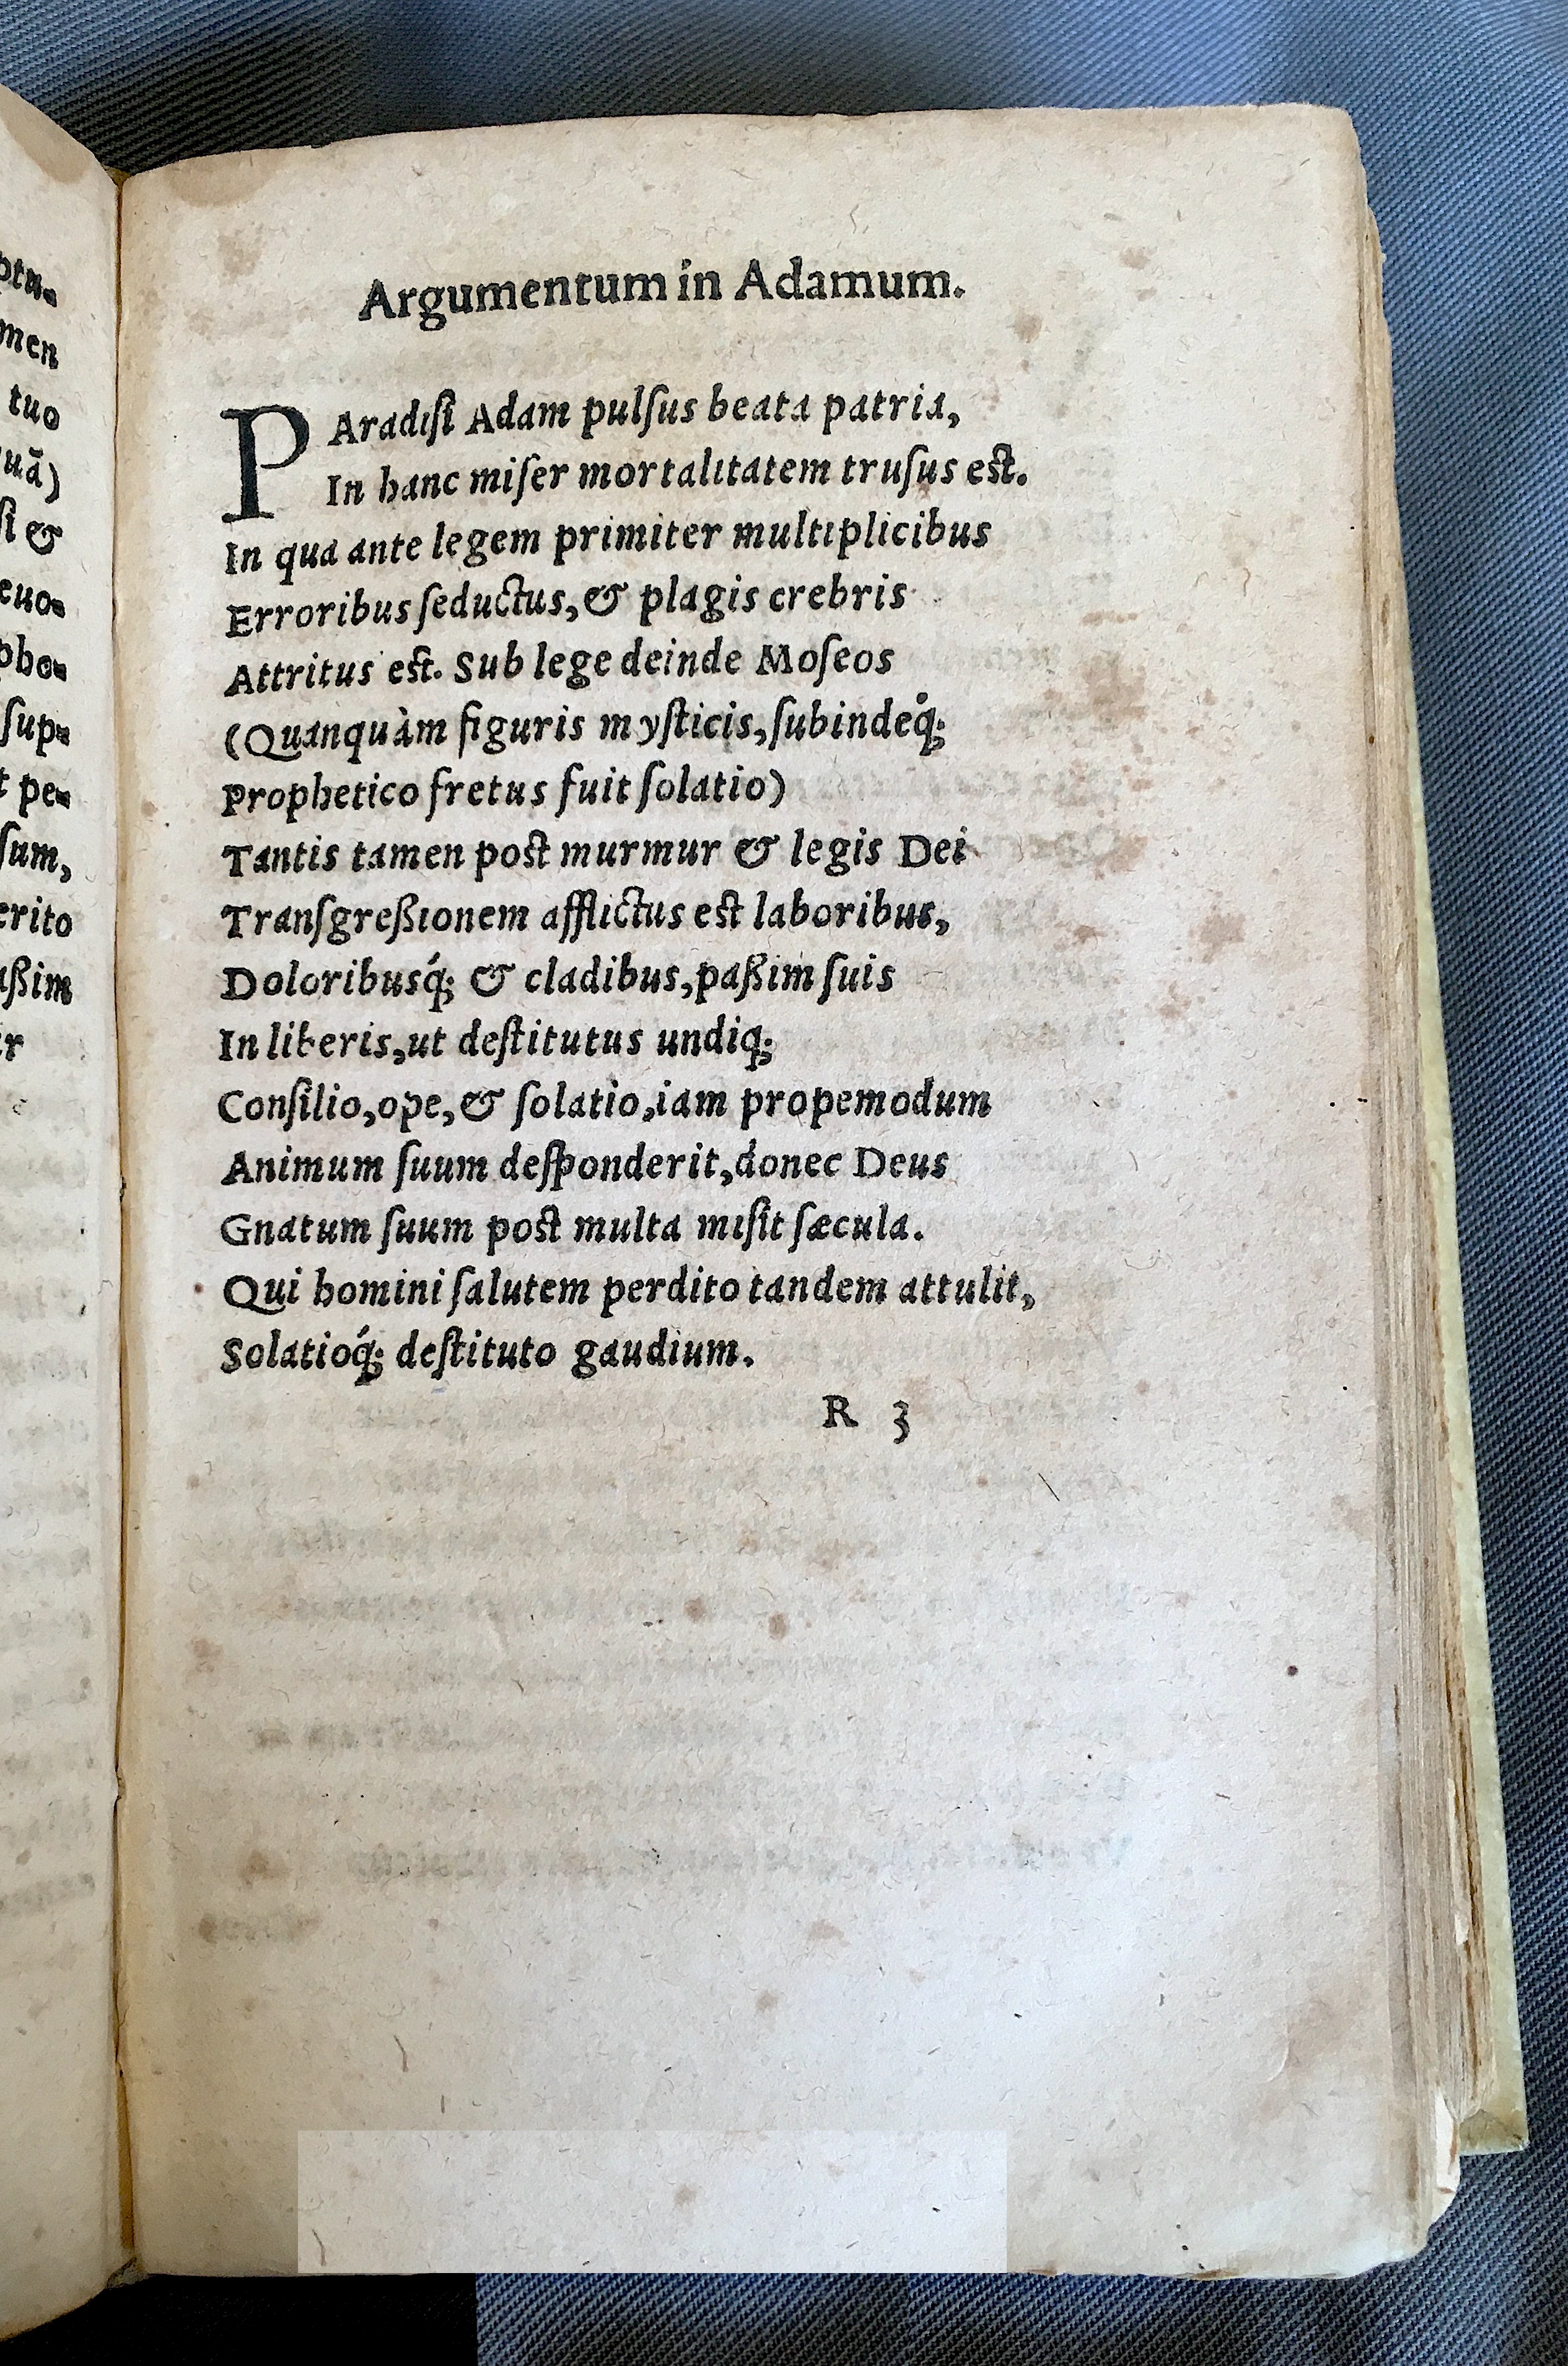 ptu-
men
tuo
uã)
ſi &
euo-
pho-
ſup-
t pe-
ſum,
erito
aßim
ir
Argumentum in Adamum.
PAradiſi Adam pulſus beata patria,
In hanc miſer mortalitatem truſus est.
In qua ante legem primiter multiplicibus
Erroribus ſeductus, & plagis crebris
Attritus est. Sub lege deinde Moſeos
(Quanquàm figuris myſticis, ſubindeq́;
Prophetico fretus fuit ſolatio)
Tantis tamen post murmur & legis Dei
Tranſgreßionem afflictus est laboribus,
Doloribusq́; & cladibus, paßim ſuis
In liberis, ut deſtitutus undiq;
Conſilio, ope, & ſolatio, iam propemodum
Animum ſuum deſponderit, donec Deus
Gnatum ſuum post multa miſit ſæcula.
Qui homini ſalutem perdito tandem attulit,
Solatioq́; deſtituto gaudium.
R 3